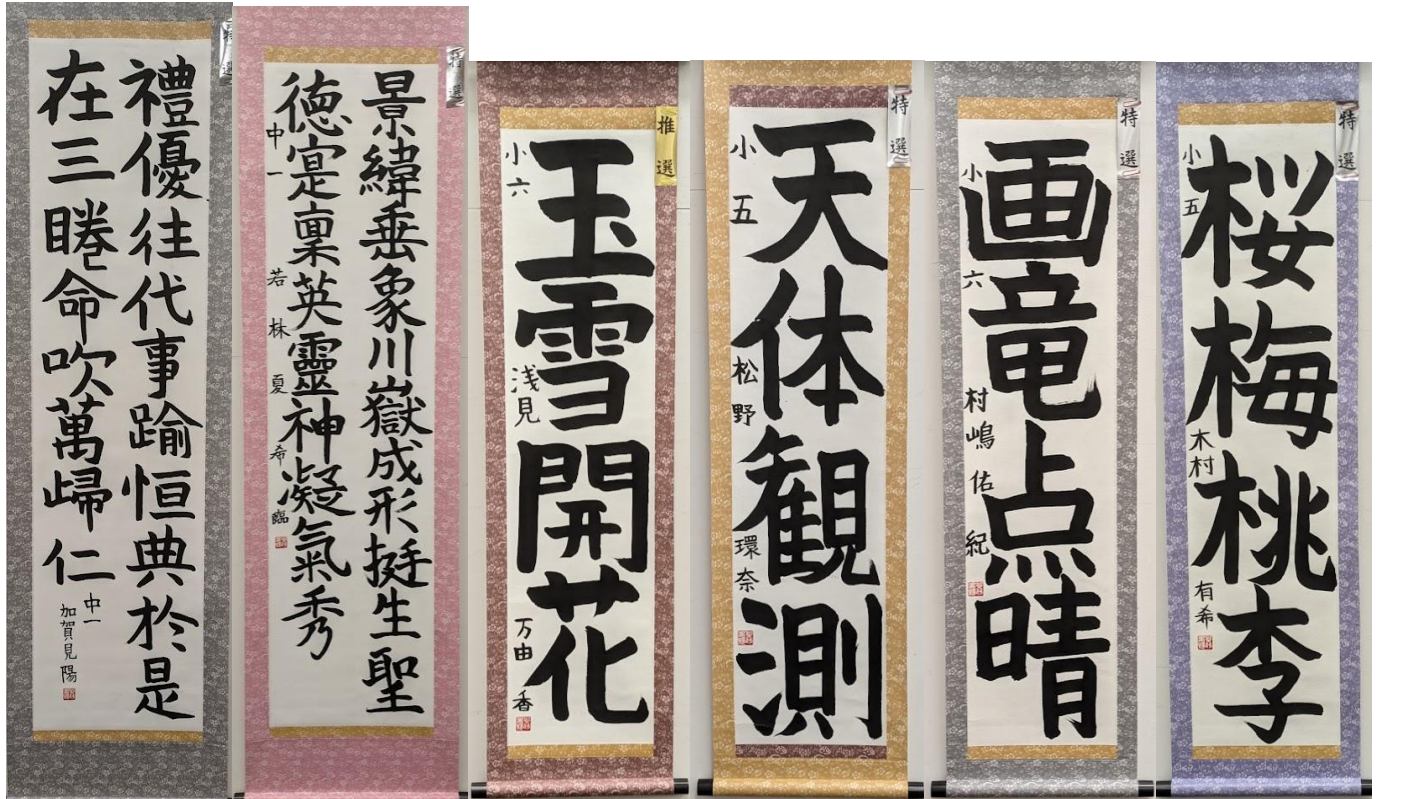 特選
禮優往代事踰恒典於是
在三睠命吹萬歸仁
中一
加賀見陽
特選
景緯垂象川嶽成形挺生聖
徳寔稟英靈神凝氣秀
中一 若林夏希臨
推選
玉雪開花
小六 浅見万由香
特選
天体観測
小五 松野環奈
特選
画竜点晴
小六 村嶋佑紀
特選
桜梅桃李
小五 木村有希